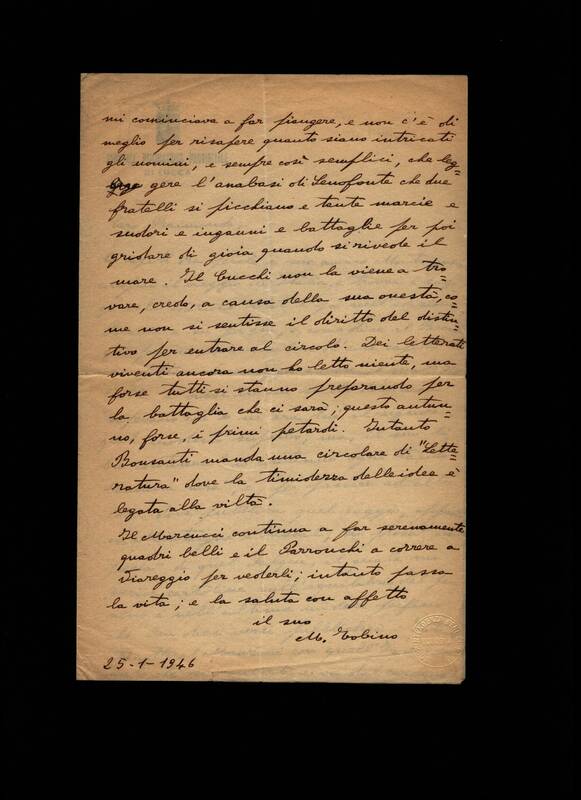 mi cominciava a far piangere, e non c'è di
meglio per risapere quanto siano intricati
gli uomini, e sempre così semplici, che leg=
gere l'anabasi di Senofonte che due
fratelli si picchiano e tante marcie e
sudori e inganni e battaglie per poi
gridare di gioia quando si rivede il
mare. Il Cucchi non la viene a tro=
vare, credo, a causa della sua onestà, co=
me non si sentisse il diritto del distin=
tivo per entrare al circolo. Dei letterati
viventi ancora non ho letto niente, ma
forse tutti si stanno preparando per
la battaglia che ci sarà; questo autun=
no, forse, i primi petardi. Intanto
Bonsanti manda una circolare di "Lette=
ratura" dove la timidezza delle idee è
legata alla viltà.
Il Marcucci continua a far serenamente
quadri belli e il Parronchi a correre a
Viareggio per vederli; intanto passa
la vita; e la saluta con affetto
il suo
M. Tobino
25-1-1946